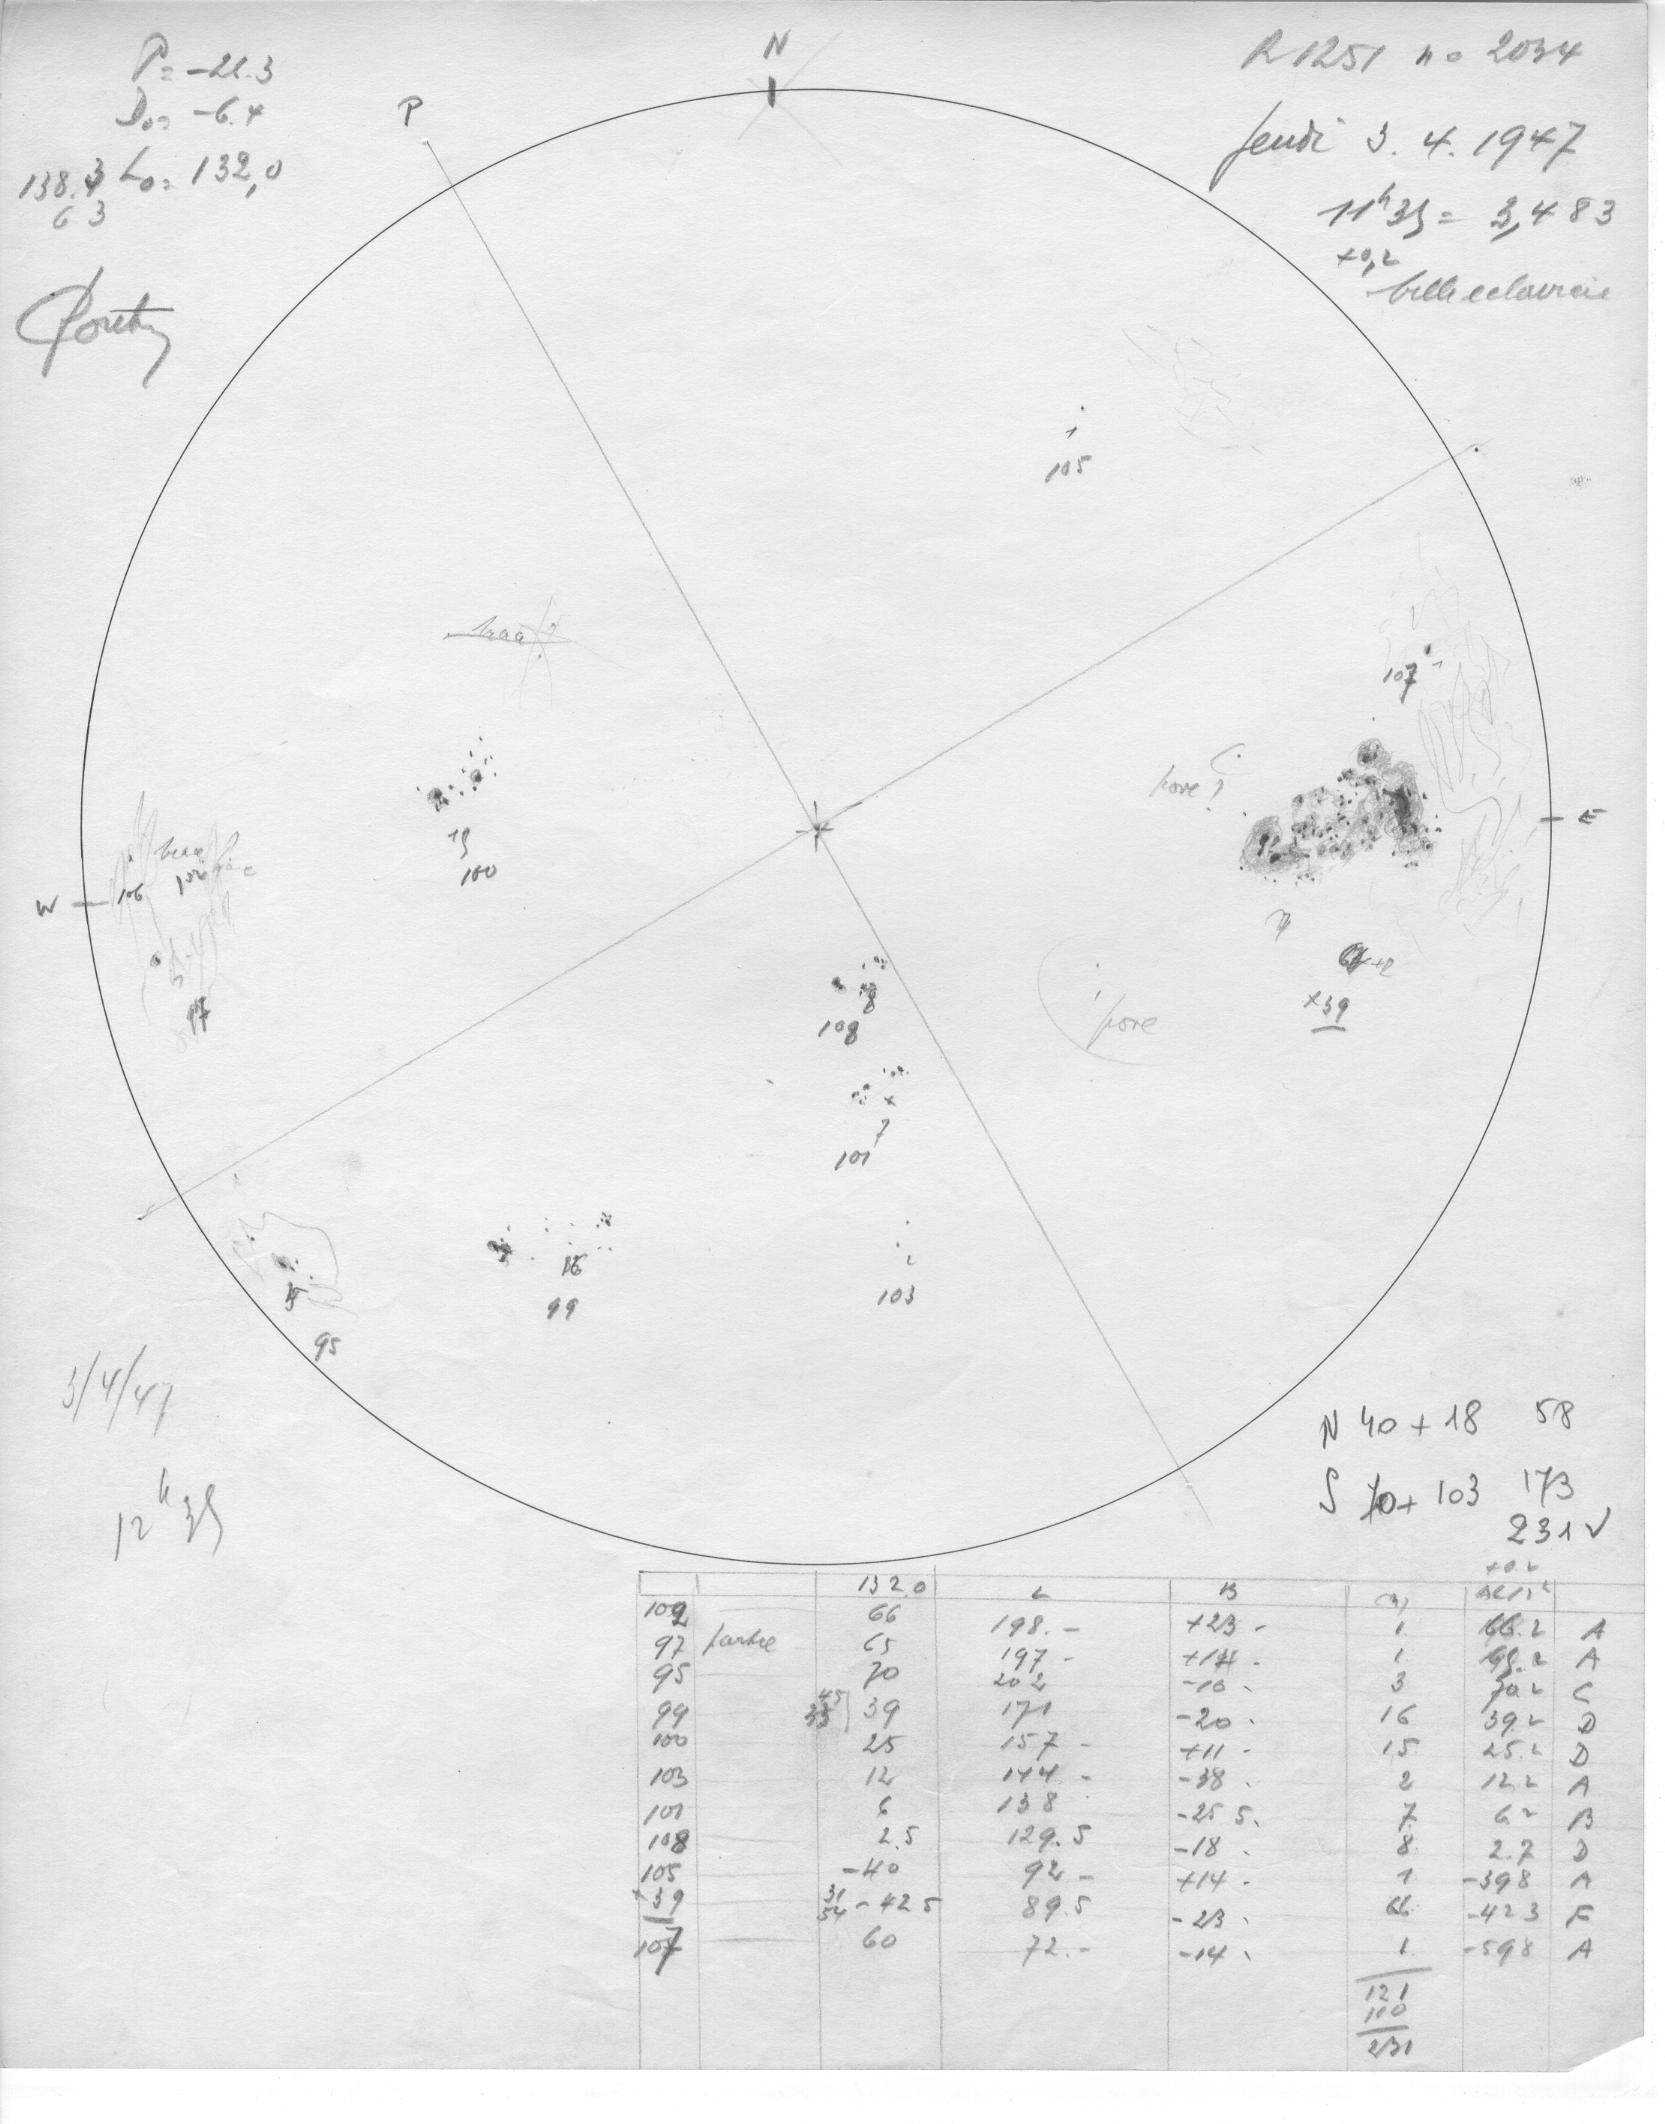 P = -26.3
D₀ = -6.4
138.3 L₀ = 132,0
6 3
P
N
R1251 no 2034
Jeudi 3. 4. 1947
11h35 = 3,483
+0,2
belle eclaircie
1
105
107
1
pore ?
E
W
106
102
15
100
97
8
108
pore
+39
7
101
16
99
2
103
95
3/4/47
12h35
N 40 + 18 58
S 70 + 103 173
231 ✓
132.0 L B
+0.2
102 66 198.- +23 - 1 66.2 A
97 65 197 - 1 65.2 A
95 70 202 -10 . 3 70.2 C
99 39 171 -20 . 16 39.2 D
100 25 157 - +11 - 15 25.2 D
103 12 144 - -38 . 2 12.2 A
101 6 138 -25 5. 7 6 2 B
108 2.5 129.5 -18 . 8 2.7 D
105 -40 92 - +14 - 1 -398 A
+39 31 54 -42 5 89.5 -23 . 66 -423 F
107 60 72.- -14 . 1 -598 A
121
110
231